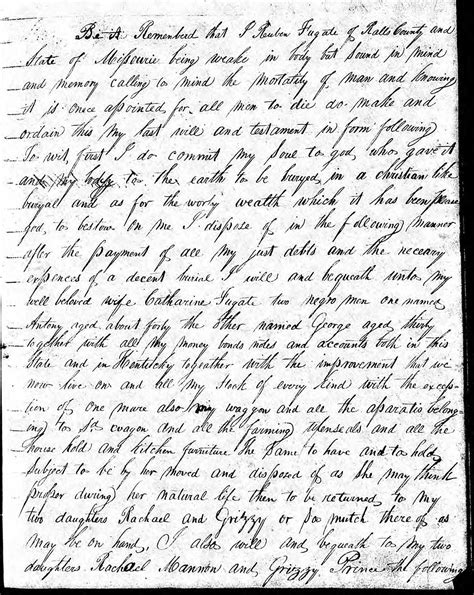 Be it Remembered that I Reuben Fugate of Ralls County and
State of Missourie being weake in body but sound in mind
and memory calling to mind the mortality of man and knowing
it is once appointed for all men to die do make and
ordain this my last will and testament in form following
To wit, first I do commit my soul to god, who gave it
and my body to the earth to be buryed in a christian like
buryall and as for the worly wealth which it has been please
god, to bestow on me I dispose of in the following manner
after the payment of all my just debts and the necesary
expences of a decent burial I will and bequeath unto my
well beloved wife Catharine Fugate two negro men one named
Antony aged about forty the other named George aged thirty
together with all my money bonds notes and accounts both in this
State and in Kentucky togeather with the improvement that we
now live on and all my stock of every kind with the excep
tion of one mare also my waggon and all the aparatis belong
ing to sd waggon and all the farming utensials and all the
house hold and kitchen furniture the same to have and to hold
subject to be by her moved and disposed of as she may think
proper during her natural life then to be returned to my
two daughters Rachael and Grizzy or so mutch there of as
may be on hand, I also will and bequeath to my two
daughters Rachael Mannon and Grizzy Prince the following